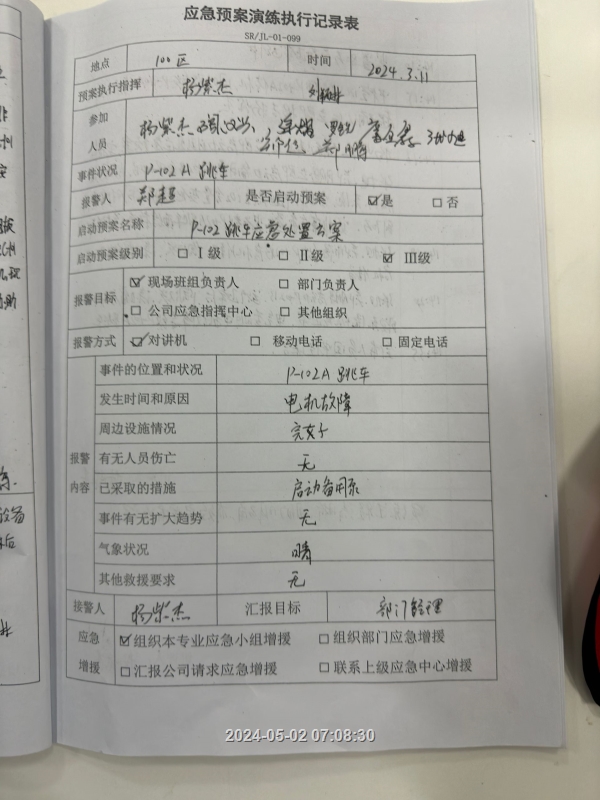 应急预案演练执行记录表
SR/JL-01-099
地点 100区 时间 2024.3.11
预案执行指挥 杨紫杰
参加人员 杨紫杰 郑鹏
事件状况 P-102A跳车
报警人 郑超 是否启动预案 ☑是 □否
启动预案名称 P-102跳车应急处置方案
启动预案级别 □Ⅰ级 □Ⅱ级 ☑Ⅲ级
报警目标 ☑现场班组负责人 □部门负责人
□公司应急指挥中心 □其他组织
报警方式 ☑对讲机 □移动电话 □固定电话
报警内容
事件的位置和状况 P-102A跳车
发生时间和原因 电机故障
周边设施情况 完好
有无人员伤亡 无
已采取的措施 启动备用泵
事件有无扩大趋势 无
气象状况 晴
其他救援要求 无
接警人 杨紫杰 汇报目标 部门经理
应急增援 ☑组织本专业应急小组增援 □组织部门应急增援
□汇报公司请求应急增援 □联系上级应急中心增援
2024-05-02 07:08:30